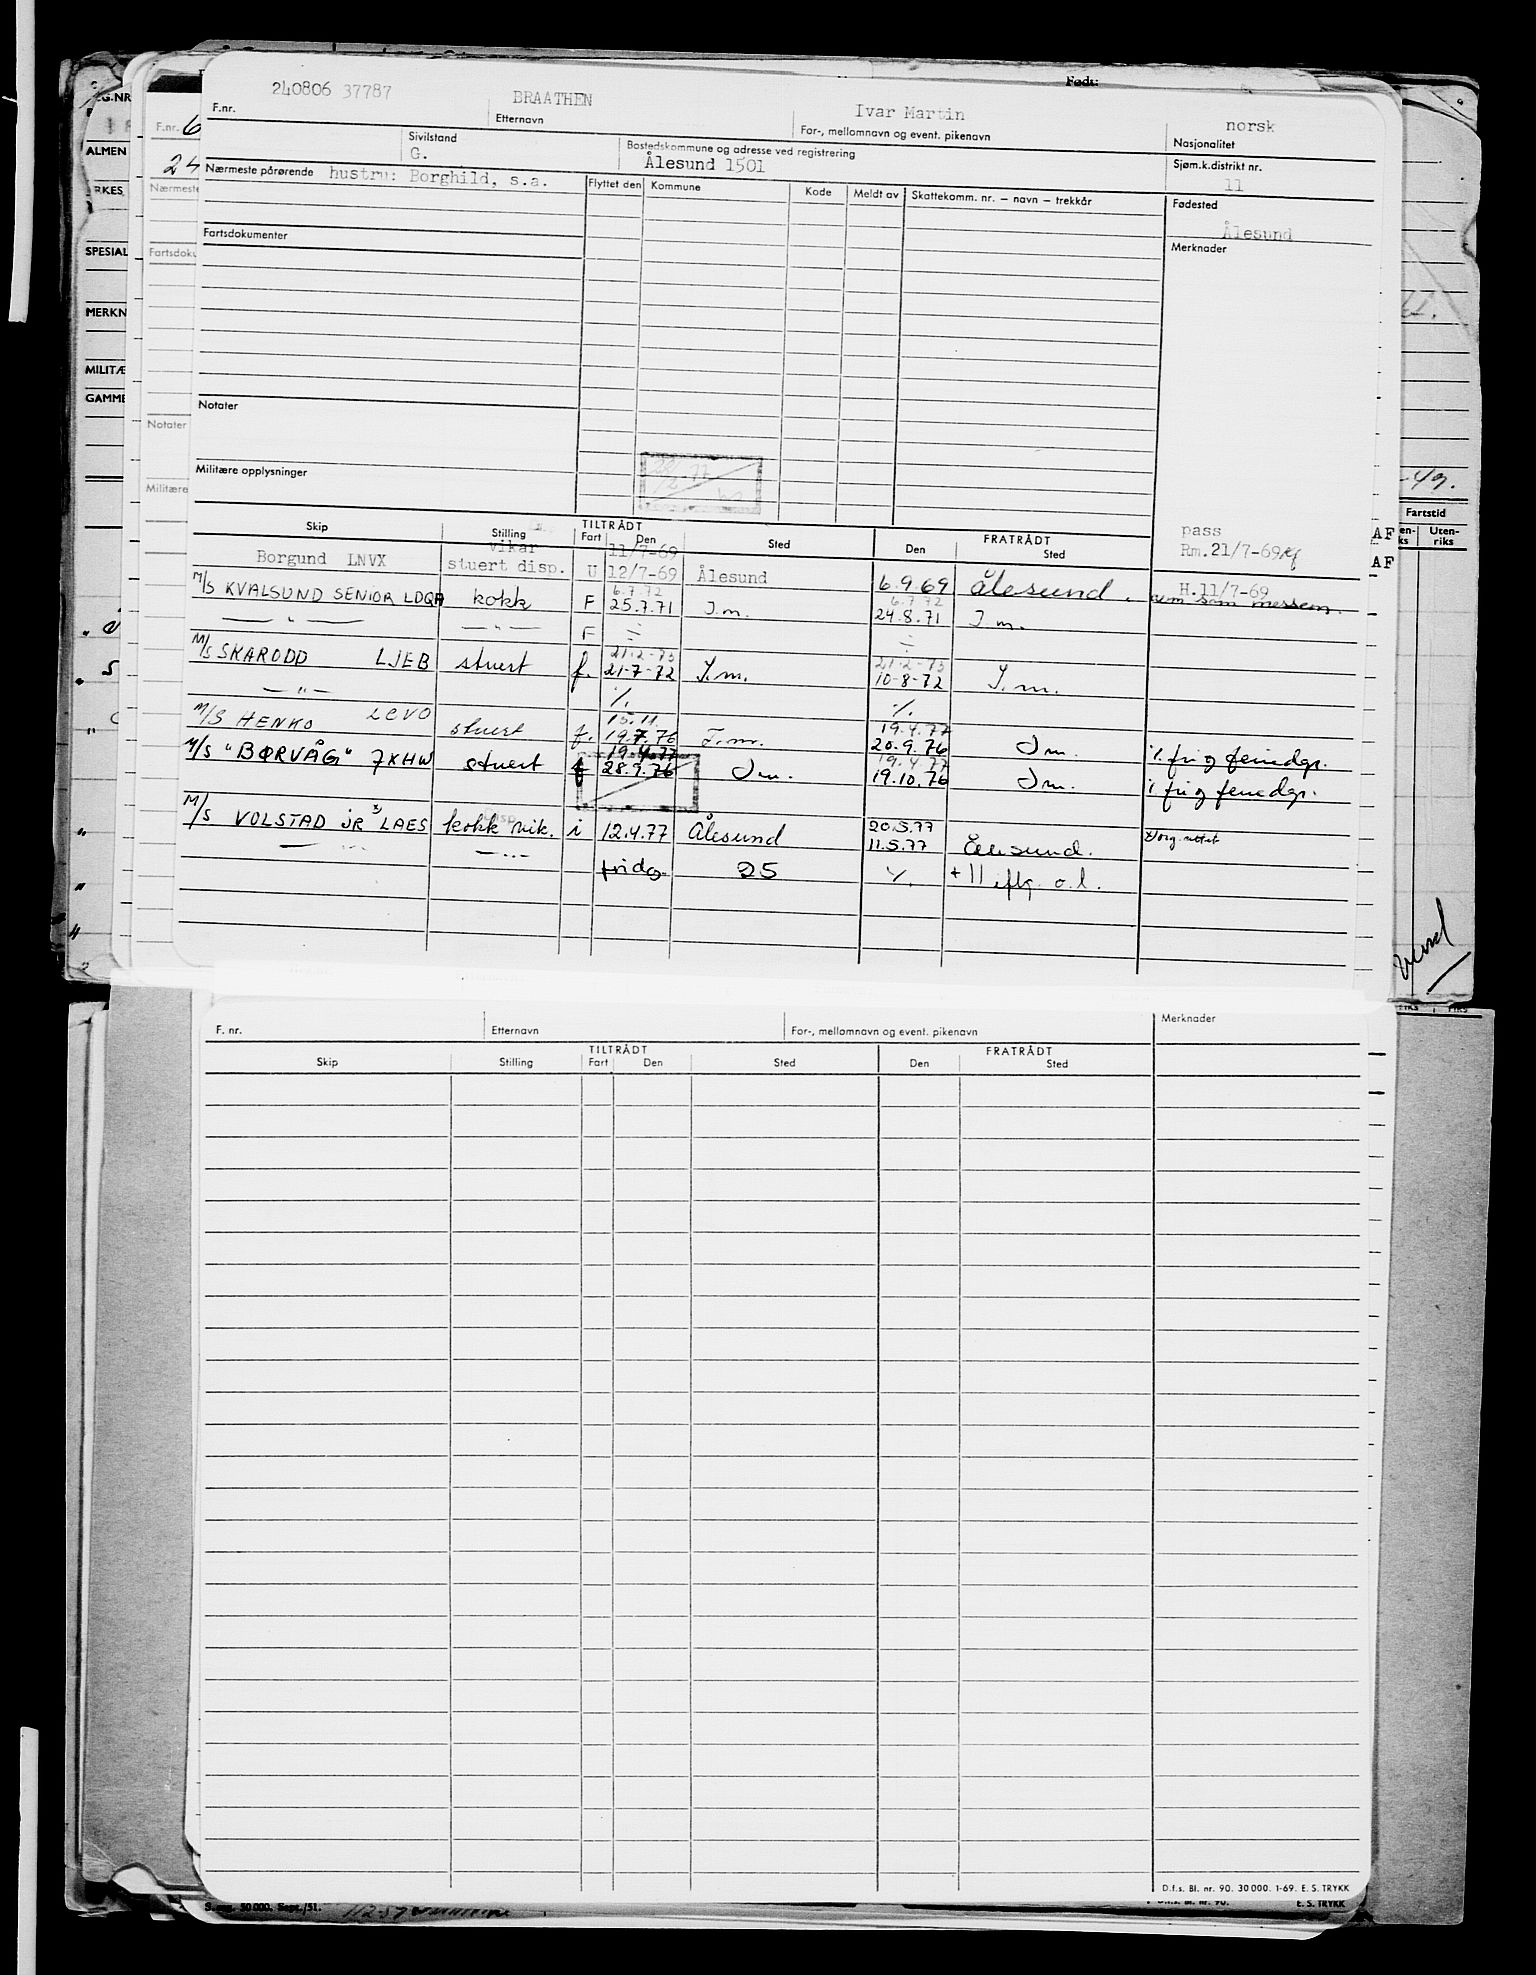 Født:
240806 37787 BRAATHEN Ivar Martin norsk
F.nr. Etternavn For-, mellomnavn og event. pikenavn Nasjonalitet
Sivilstand Bostedskommune og adresse ved registrering Sjøm.k.distrikt nr.
G. Ålesund 1501 11
Nærmeste pårørende hustru: Borghild, s.a. Flyttet den Kommune Kode Meldt av Skattekomm. nr. – navn – trekkår Fødested
Ålesund
Fartsdokumenter Merknader
Notater
Militære opplysninger
Skip Stilling TILTRÅDT Fart Den Sted FRATRÅDT Den Sted
pass
Rm.21/7-69
vikar 11/7-69
Borgund LNVX stuert disp. U 12/7-69 Ålesund 6.9.69 Ålesund. H.11/7-69
6.7.72 6.7.72
M/S KVALSUND SENIOR LDQA kokk F 25.7.71 I.m. 24.8.71 I m.
— " — — " — F ÷ ÷
21-2-73 21-2-73
M/S SKARODD LJEB stuert f. 21-7-72 I.m. 10-8-72 I.m.
— " — %. %.
15.11. 19.4.77
M/S HENKO LCVO stuert f. 19.7.76 I.m. 20.9.76 I m. % fri og feriedgr.
19.4.77 19.4.77
M/S "BØRVÅG" JXHW stuert f 28.9.76 I m. 19.10.76 I m. % fri og feriedgr.
20.5.77
M/S VOLSTAD JR x) LAES kokk vik. i 12.4.77 Ålesund 11.5.77 Ålesund.
— " — — " — fridg. 25 %. + 11 iflg. o.l.
F. nr. Etternavn For-, mellomnavn og event. pikenavn Merknader
Skip Stilling TILTRÅDT Fart Den Sted FRATRÅDT Den Sted
D.f.s. Bl. nr. 90. 30 000. 1-69. E. S. TRYKK
E. S. TRYKK
ALMEN
SPESIAL
MERKN
MILITÆ
GAMME
F.nr. 6
24
Nærmeste
Fartsdoku
Notater
Militære
Fartstid
Uten-
riks
AF
AF